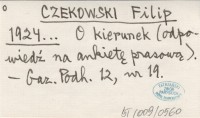 CZEKOWSKI Filip
1924... O kierunek (odpo-
wiedź na ankietę prasową).
— Gaz. Podh. 12, nr 19.
BT 1009/0560